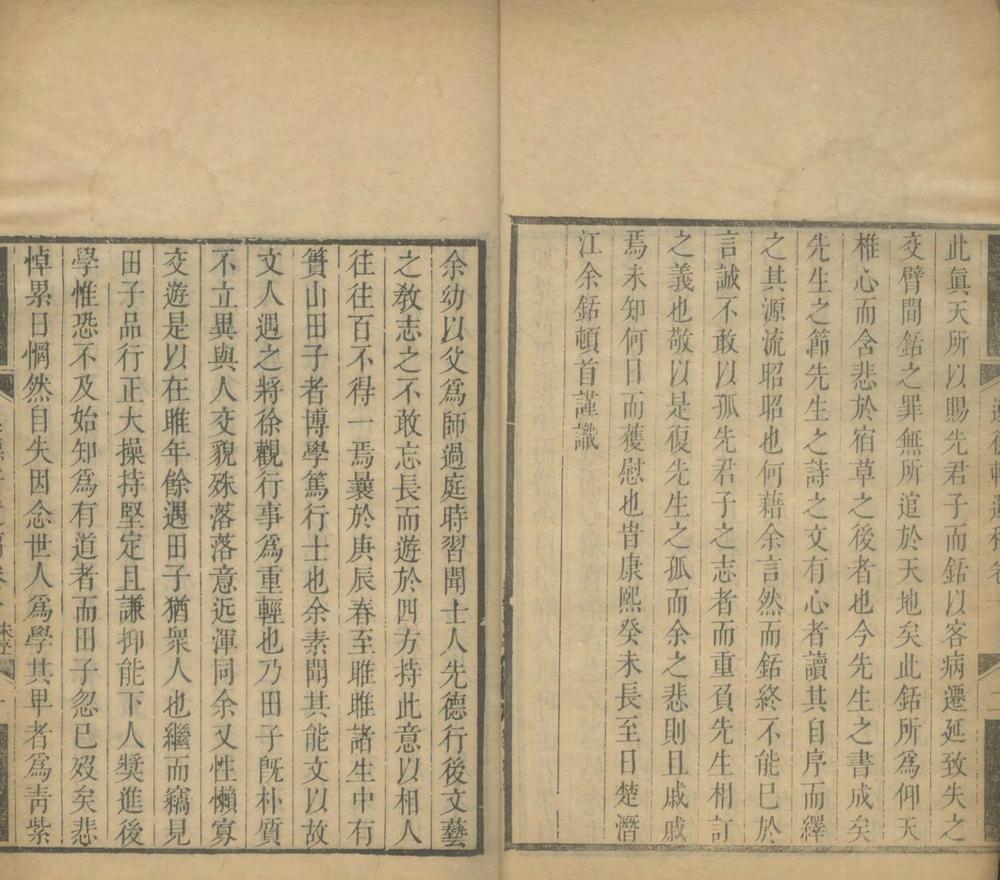 此眞天所以賜先君子而銛以客病遷延致失之
交臂間銛之罪無所逭於天地矣此銛所爲仰天
椎心而含悲於宿草之後者也今先生之書成矣
先生之節先生之詩之文有心者讀其自序而繹
之其源流昭昭也何藉余言然而銛終不能已於
言誠不敢以孤先君子之志者而重負先生相訂
之義也敬以是復先生之孤而余之悲則且戚戚
焉未知何日而獲慰也昔康熙癸未長至日楚潛
江余銛頓首謹識
余幼以父爲師過庭時習聞士人先德行後文藝
之敎志之不敢忘長而遊於四方持此意以相人
往往百不得一焉曩於庚辰春至睢睢諸生中有
簣山田子者博學篤行士也余素聞其能文以故
文人遇之將徐觀行事爲重輕也乃田子旣朴質
不立異與人交貌殊落落意近渾同余又性懶寡
交遊是以在睢年餘遇田子猶衆人也繼而竊見
田子品行正大操持堅定且謙抑能下人奬進後
學惟恐不及始知爲有道者而田子忽已歿矣悲
悼累日惘然自失因念世人爲學其卑者爲靑紫